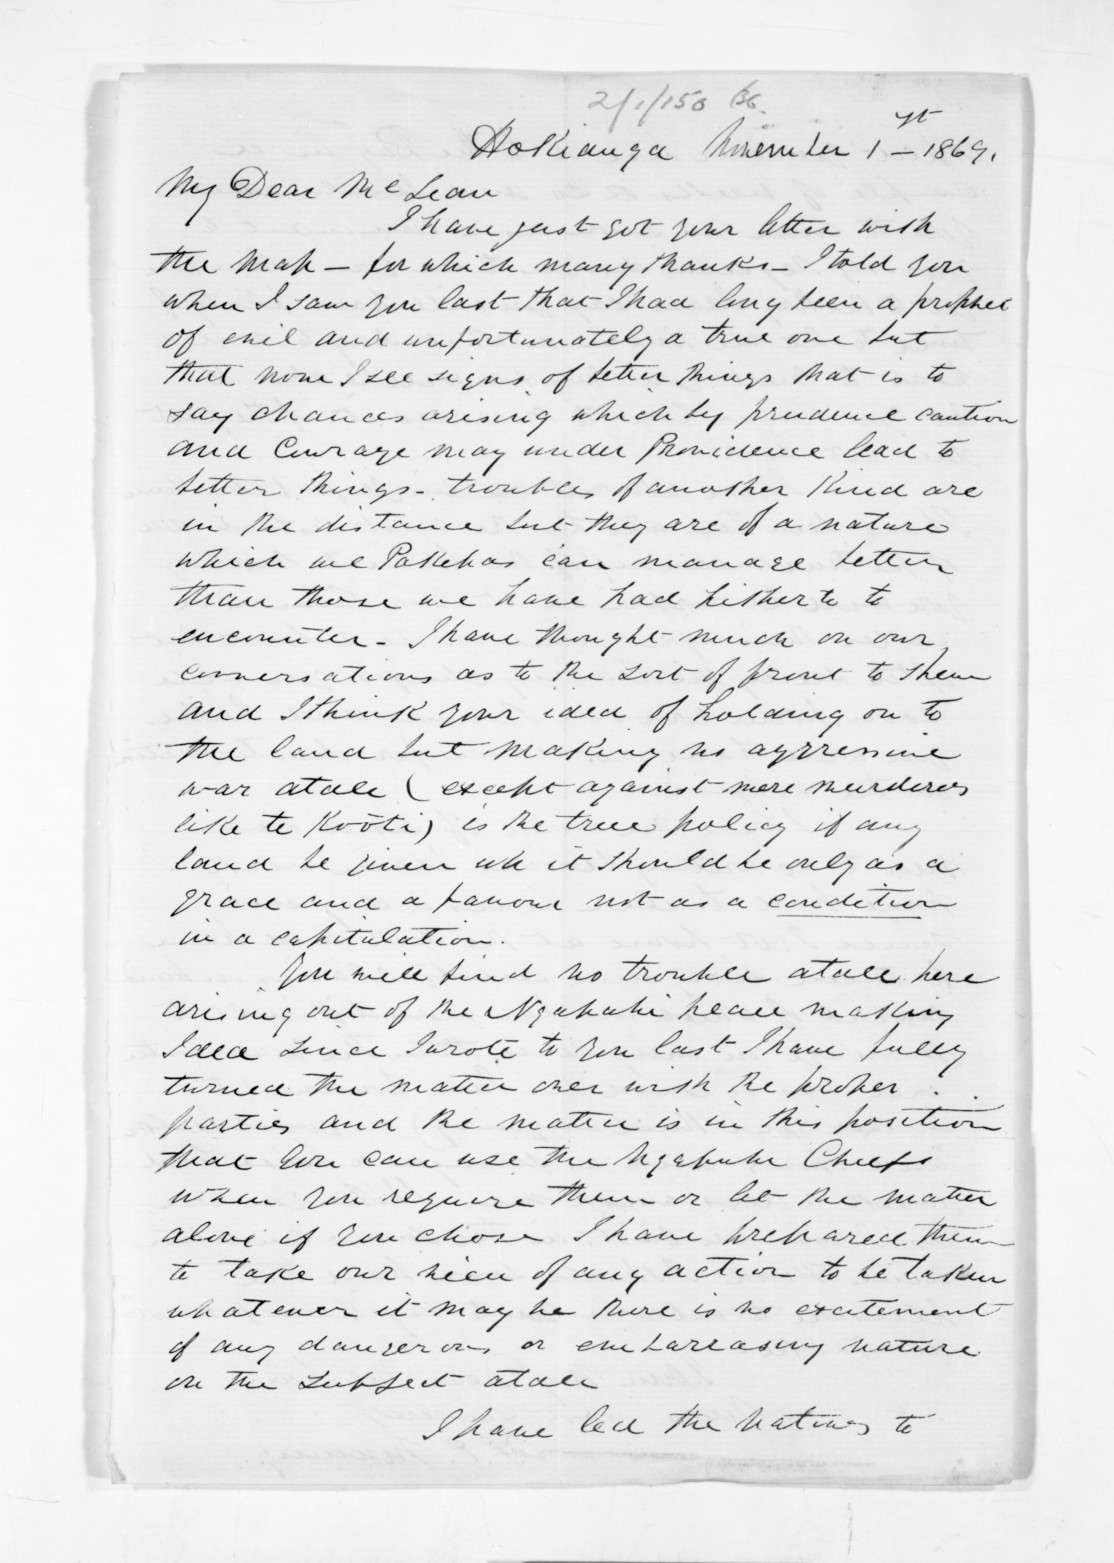 2/1/150
Hokianga November 1st - 1869.
My Dear McLean
I have just got your letter with
the Map - for which many thanks - I told you
when I saw you last that I had long been a prophet
of evil and unfortunately a true one but
that now I see signs of better things that is to
say chances arising which by prudence caution
and Courage may under Providence lead to
better things - troubles of another Kind are
in the distance but they are of a nature
which we Pakehas can manage better
than those we have had hitherto to
encounter - I have thought much on our
conversations as to the sort of front to shew
and I think your idea of holding on to
the land but making no aggressive
war atall (except against mere murderers
like te Kooti) is the true policy if any
land be given up it should be only as a
grace and a favour not as a condition
in a capitulation.
You will find no trouble atall here
arising out of the Ngapuhi peace making
Idea since I wrote to you last I have fully
turned the matter over with the proper
parties and the matter is in this position
that you can use the Ngapuhi Chiefs
when you require them or let the matter
alone if you chose I have prepared them
to take our view of any action to be taken
whatever it may be there is no excitement
of any dangerous or embareasing nature
on the subject atall
I have led the Natives to